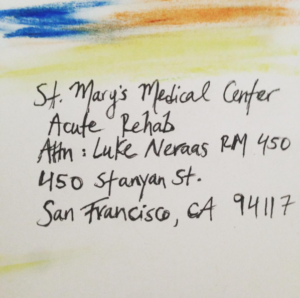 St. Mary's Medical Center
Acute Rehab
Attn: Luke Neraas RM 450
450 Stanyan St.
San Francisco, CA 94117